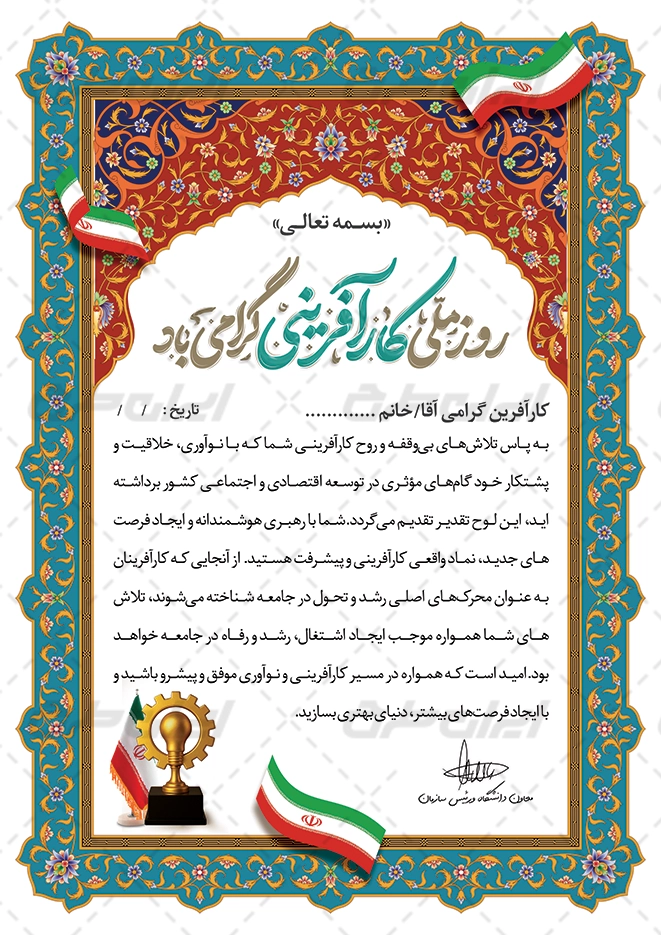 «بسمه تعالی»
روز ملی کارآفرینی گرامی باد
کارآفرین گرامی آقا/خانم ............. تاریخ : / /
به پاس تلاش‌های بی‌وقفه و روح کارآفرینی شما که با نوآوری، خلاقیت و
پشتکار خود گام‌های مؤثری در توسعه اقتصادی و اجتماعی کشور برداشته
اید، این لوح تقدیر تقدیم می‌گردد.شما با رهبری هوشمندانه و ایجاد فرصت
های جدید، نماد واقعی کارآفرینی و پیشرفت هستید. از آنجایی که کارآفرینان
به عنوان محرک‌های اصلی رشد و تحول در جامعه شناخته می‌شوند، تلاش
های شما همواره موجب ایجاد اشتغال، رشد و رفاه در جامعه خواهد
بود.امید است که همواره در مسیر کارآفرینی و نوآوری موفق و پیشرو باشید و
با ایجاد فرصت‌های بیشتر، دنیای بهتری بسازید.
معاون دانشگاه و رئیس سازمان
ایران طرح